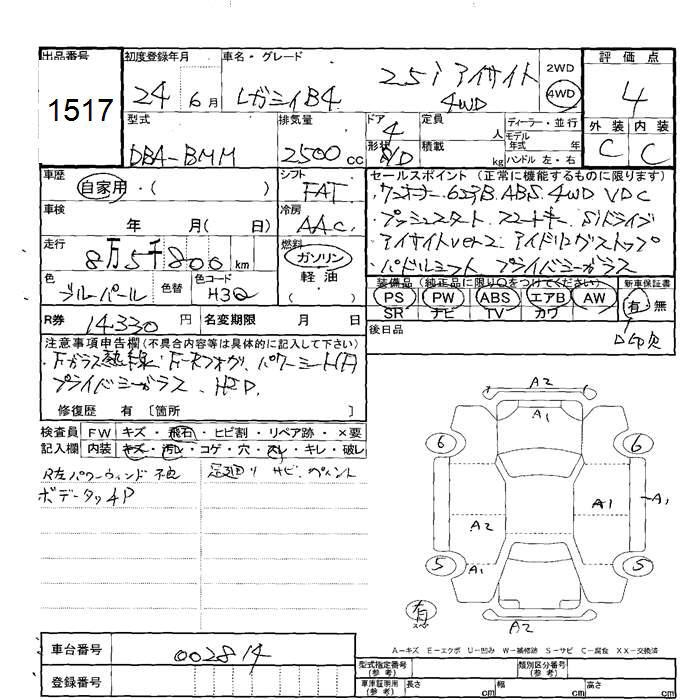 出品番号
1517
初度登録年月
24 6月
車名・グレード
レガシィB4
2.5i アイサイト
4WD
2WD
4WD
評価点
4
外装 内装
C C
型式
DBA-BMM
排気量
2500cc
ドア
4
形状
定員 人
積載 kg
ディーラー・並行
モデル
年式 年
ハンドル 左・右
車歴
自家用・( )
シフト
FAT
車検
年 月( 日)
冷房
AAC
走行
8万5千800km
燃料
ガソリン
軽油
( )
色
ブルーパール
色替
色コード
H3Q
セールスポイント (正常に機能するものに限ります)
・ワンオーナー 6スピB. ABS. 4WD VDC
・プッシュスタート スマートキー SIドライブ
・アイサイトver.2. アイドリングストップ
・パドルシフト プライバシーガラス
装備品 (純正品に限り○をつけてください)
PS PW ABS エアB AW
SR ナビ TV カワ
新車保証書
有 無
後日品
R券 14.330円
名変期限 月 日
注意事項申告欄(不具合内容等は具体的に記入して下さい)
・Fガラス熱線. F-Rフォグ. パワーシート(F)
プライバシーガラス. HID.
修復歴 有 〔箇所 〕
検査員
記入欄
FW キズ・飛石・ヒビ割・リペア跡・×要
内装 キズ・汚レ・コゲ・穴・スレ・キレ・破レ
R左パワーウィンド不良
足廻り サビ. ペイント
ボデータッチP
A2
A1
6 6
A1 A1
A2
5 A1 5
有
スペア
A2
A-キズ E-エクボ U-凹み W-補修跡 S-サビ C-腐食 XX-交換済
車台番号
002814
登録番号
型式指定番号
(参考)
類別区分番号
(参考)
車庫証明用
(参考)
長さ cm 幅 cm 高さ cm